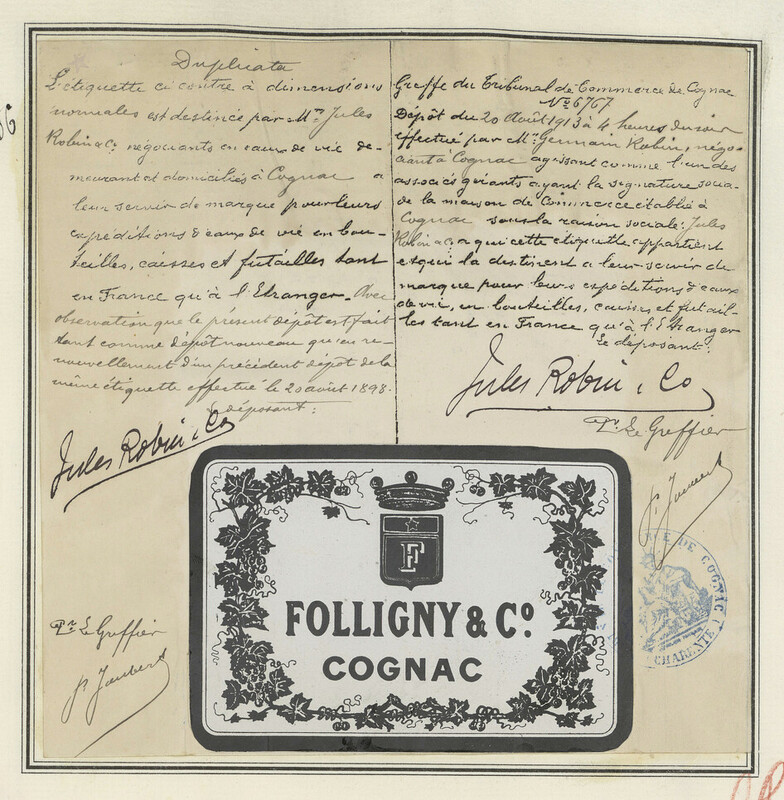 Duplicata
L'étiquette ci contre à dimensions
normales est destinée par Mrs Jules
Robin & Co négociants en eaux de vie de-
meurant et domiciliés à Cognac a
leur servir de marque pour leurs
expéditions d'eaux de vie en bou-
teilles, caisses et futailles tant
en France qu'à l'Etranger. Avec
observation que le présent dépôt est fait
tant comme dépôt nouveau qu'en re-
nouvellement d'un précédent dépôt de la
même étiquette effectué le 20 août 1898.
Le déposant:
Jules Robin & Co
Pr. Le Greffier
P. Joubert
Greffe du Tribunal de Commerce de Cognac
No 6767
Dépôt du 20 Août 1913 à 4 heures du soir
effectué par Mr. Germain Robin, négo-
ciant à Cognac agissant comme l'un des
associés gérants ayant la signature socia-
de la maison de Commerce établie à
Cognac sous la raison sociale: Jules
Robin & Co a qui cette étiquette appartient
et qui la destinent a leur servir de
marque pour leurs expéditions d'eaux
de vie, en bouteilles, caisses et futail-
les tant en France qu'à l'Etranger
Le déposant:
Jules Robin & Co
Pr. Le Greffier
P. Joubert
DE COGNAC
CHARENTE
F
FOLLIGNY & Co.
COGNAC